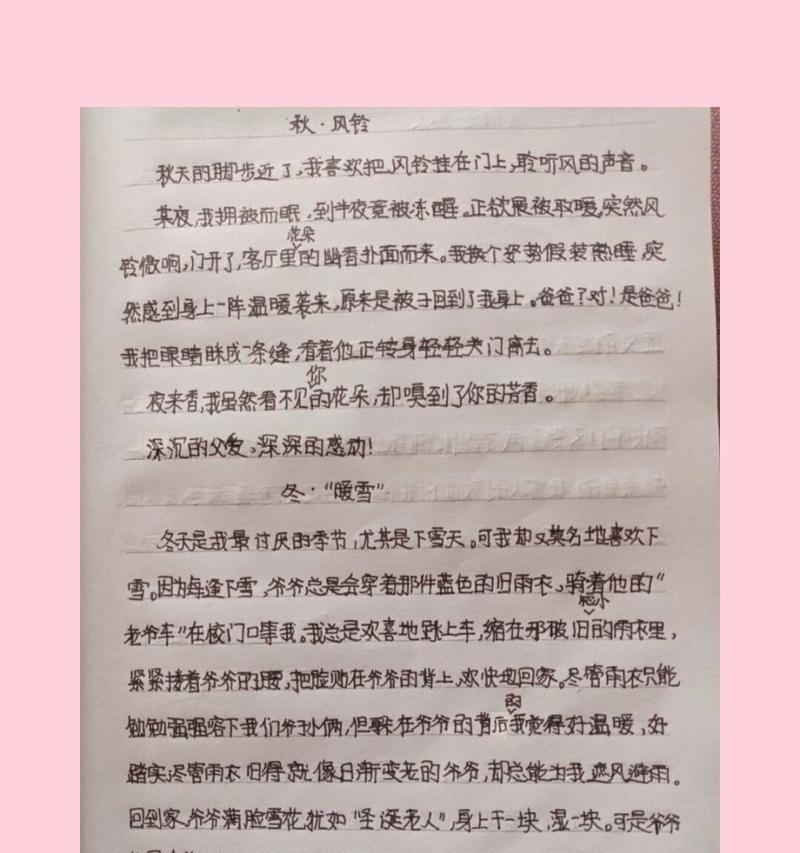 秋·风铃
秋天的脚步近了,我喜欢把风铃挂在门上,聆听风的声音。
某夜,我拥被而眠,到半夜竟被冻醒。正欲展被取暖,突然风
铃微响,门开了,客厅里花朵的幽香扑面而来。我换个姿势假装熟睡,突
然感到身上一阵温暖袭来,原来是被子回到了我身上。爸爸?对!是爸爸!
我把眼睛眯成一条缝,看着他正转身轻轻关门离去。
夜来香,我虽然看不见你的花朵,却嗅到了你的芳香。
深沉的父爱,深深的感动!
冬·“暖雪”
冬天是我最讨厌的季节,尤其是下雪天。可我却又莫名地喜欢下
雪。因为每逢下雪,爷爷总是会穿着那件蓝色的旧雨衣,骑着他的“
老爷车”在校门口等我。我总是欢喜地跳上车,缩在那破旧的雨衣里,
紧紧搂着爷爷的腰,把脸贴在爷爷的背上,欢快地回家。尽管雨衣只能
勉勉强强容下我们爷孙俩,但躲在爷爷的背后的我觉得好温暖,好
踏实。尽管雨衣旧得就像日渐变老的爷爷,却总能为我遮风避雨。
回到家,爷爷满脸雪花,犹如“圣诞老人”,身上干一块,湿一块。可是爷爷